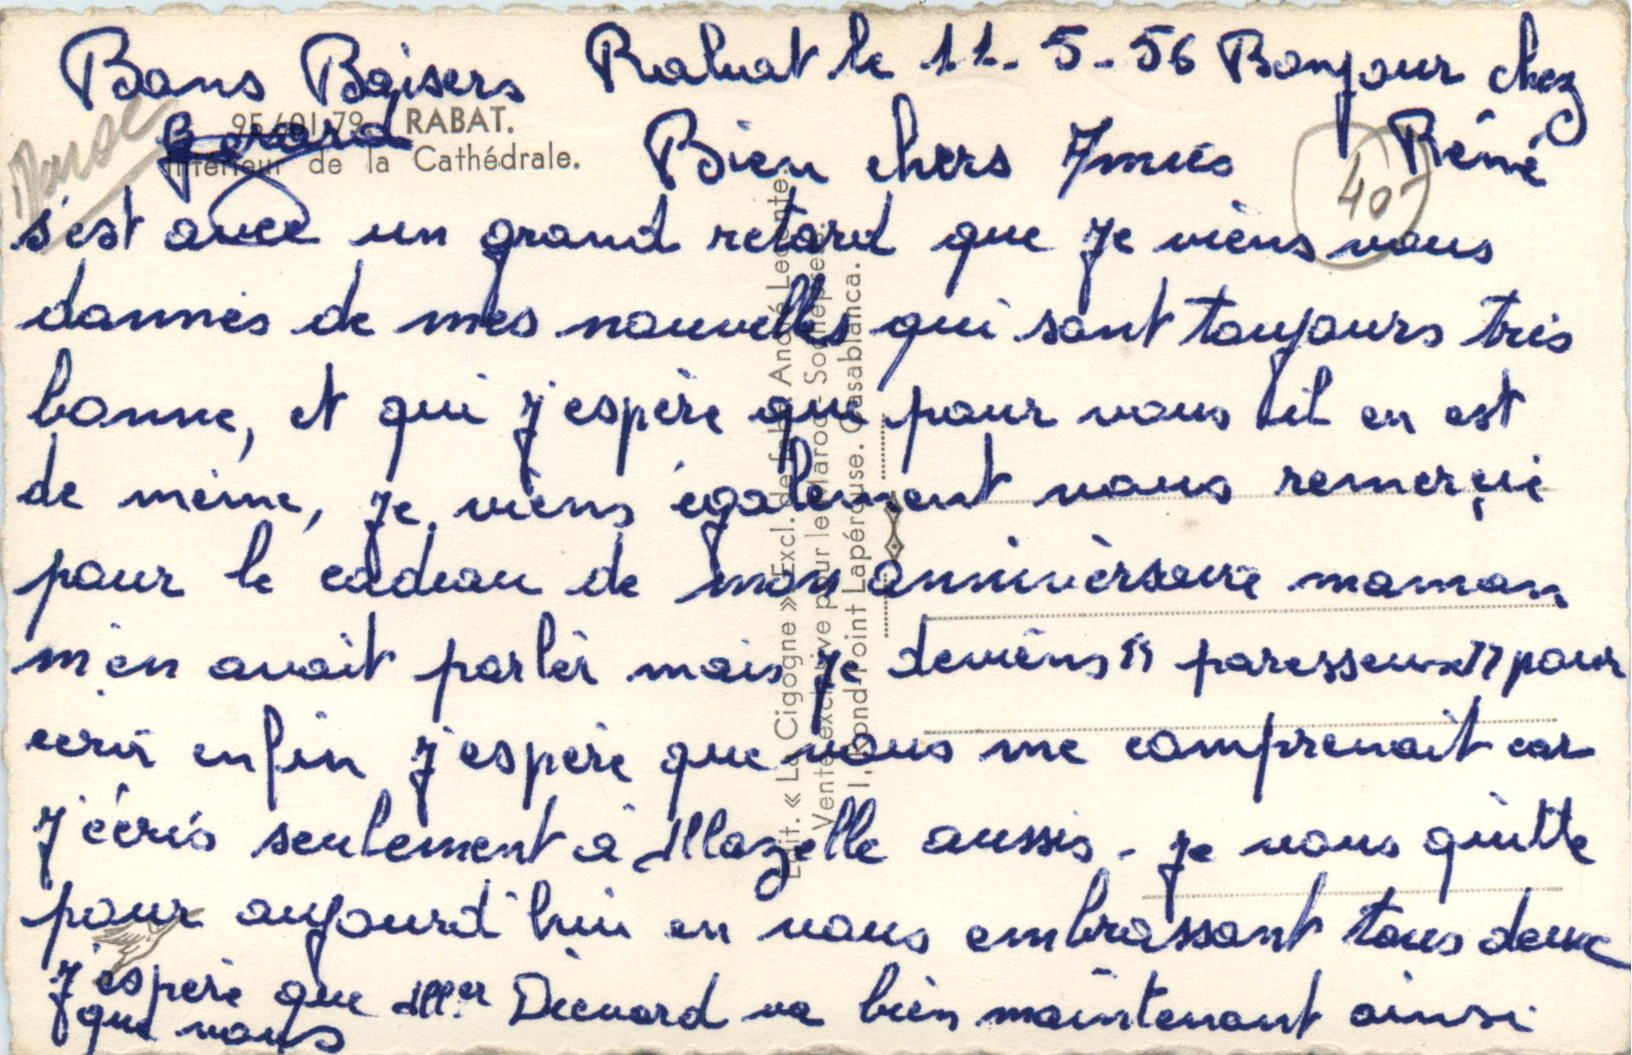 Bons Baisers Rabat le 11-5-56 Bonjour chez
Gérard René
95/01/79 RABAT.
Intérieur de la Cathédrale.
Maroc
40-
Bien chers
s'est avec un grand retard que je viens vous
donnés de mes nouvelles qui sont toujours très
bonne, et qui j'espère que pour vous il en est
de même, je viens également vous remerçié
pour le cadeau de mon anniversaire maman
m'en avait parlér mais je deviens "paresseux" pour
écrir enfin j'espère que vous me comprenait car
j'écris seulement à Mazelle aussi - je vous quitte
pour aujourd'hui en vous embrassant tous deux
j'espère que Mer va bien maintenant ainsi
que vous
Edit. « La Cigogne » Excl. de fabr. André Leconte.
Vente exclusive pour le Maroc: Sochepress.
1, Rond-Point Lapérouse. Casablanca.